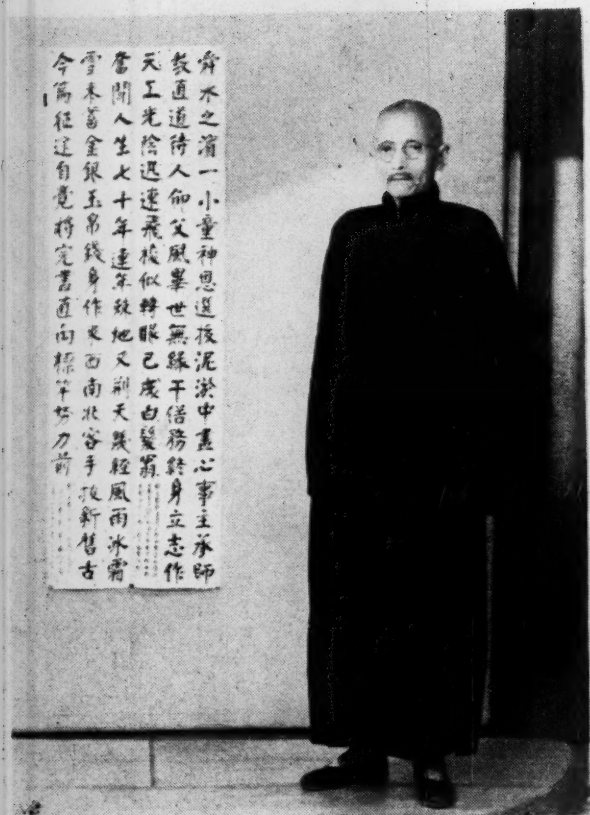 舜水之濱一小童神恩選拔泥淤中盡心事主承師
教直道待人仰父風畢世無緣干俗務終身立志作
天工光陰迅速飛梭似轉眼已成白髮翁
奮鬥人生七十年連年棘地又荆天幾經風雨冰霜
雪未蓄金銀玉帛錢身作東西南北客手披新舊古
今篇征途自覺將完畢直向標竿努力前